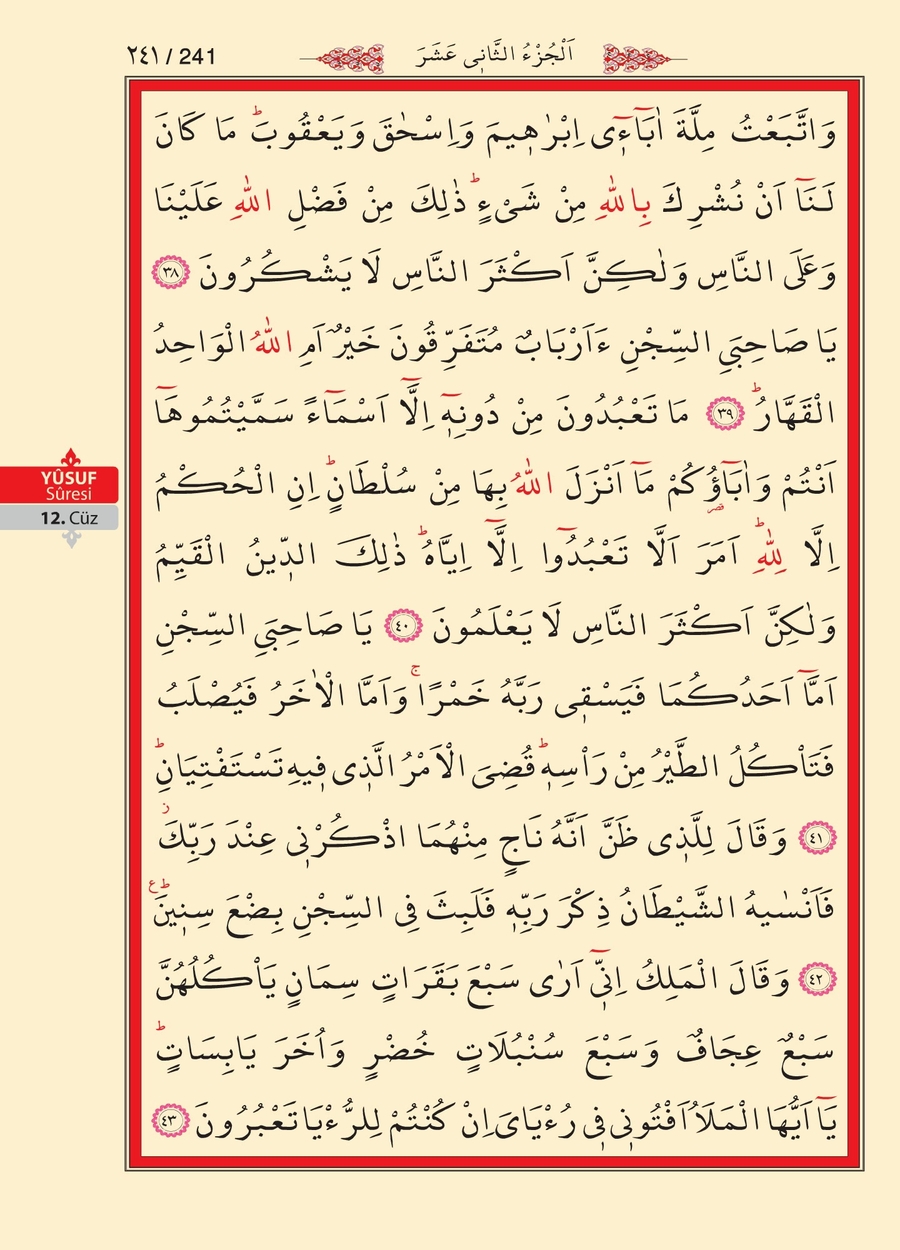 ٢٤١ / 241
اَلْجُزْءُ الثَّانٖى عَشَرَ
وَاتَّبَعْتُ مِلَّةَ اٰبَٓاءٖٓى اِبْرٰهٖيمَ وَاِسْحٰقَ وَيَعْقُوبَۜ مَا كَانَ
لَنَٓا اَنْ نُشْرِكَ بِاللّٰهِ مِنْ شَىْءٍۜ ذٰلِكَ مِنْ فَضْلِ اللّٰهِ عَلَيْنَا
وَعَلَى النَّاسِ وَلٰكِنَّ اَكْثَرَ النَّاسِ لَا يَشْكُرُونَ ﴿٣٨﴾
يَا صَاحِبَىِ السِّجْنِ ءَاَرْبَابٌ مُتَفَرِّقُونَ خَيْرٌ اَمِ اللّٰهُ الْوَاحِدُ
الْقَهَّارُۜ ﴿٣٩﴾ مَا تَعْبُدُونَ مِنْ دُونِهٖٓ اِلَّٓا اَسْمَٓاءً سَمَّيْتُمُوهَٓا
اَنْتُمْ وَاٰبَٓاؤُ۬كُمْ مَٓا اَنْزَلَ اللّٰهُ بِهَا مِنْ سُلْطَانٍۜ اِنِ الْحُكْمُ
اِلَّا لِلّٰهِۜ اَمَرَ اَلَّا تَعْبُدُٓوا اِلَّٓا اِيَّاهُۜ ذٰلِكَ الدّٖينُ الْقَيِّمُ
وَلٰكِنَّ اَكْثَرَ النَّاسِ لَا يَعْلَمُونَ ﴿٤٠﴾ يَا صَاحِبَىِ السِّجْنِ
اَمَّٓا اَحَدُكُمَا فَيَسْقٖى رَبَّهُ خَمْرًاۚ وَاَمَّا الْاٰخَرُ فَيُصْلَبُ
فَتَاْكُلُ الطَّيْرُ مِنْ رَاْسِهٖۜ قُضِىَ الْاَمْرُ الَّذٖى فٖيهِ تَسْتَفْتِيَانِۜ
﴿٤١﴾ وَقَالَ لِلَّذٖى ظَنَّ اَنَّهُ نَاجٍ مِنْهُمَا اذْكُرْنٖى عِنْدَ رَبِّكَۘ
فَاَنْسٰيهُ الشَّيْطَانُ ذِكْرَ رَبِّهٖ فَلَبِثَ فِى السِّجْنِ بِضْعَ سِنٖينَۜ ع
﴿٤٢﴾ وَقَالَ الْمَلِكُ اِنّٖٓى اَرٰى سَبْعَ بَقَرَاتٍ سِمَانٍ يَاْكُلُهُنَّ
سَبْعٌ عِجَافٌ وَسَبْعَ سُنْبُلَاتٍ خُضْرٍ وَاُخَرَ يَابِسَاتٍۜ
يَٓا اَيُّهَا الْمَلَاُ اَفْتُونٖى فٖى رُءْيَاىَ اِنْ كُنْتُمْ لِلرُّءْيَا تَعْبُرُونَ ﴿٤٣﴾
YÛSUF
Sûresi
12. Cüz